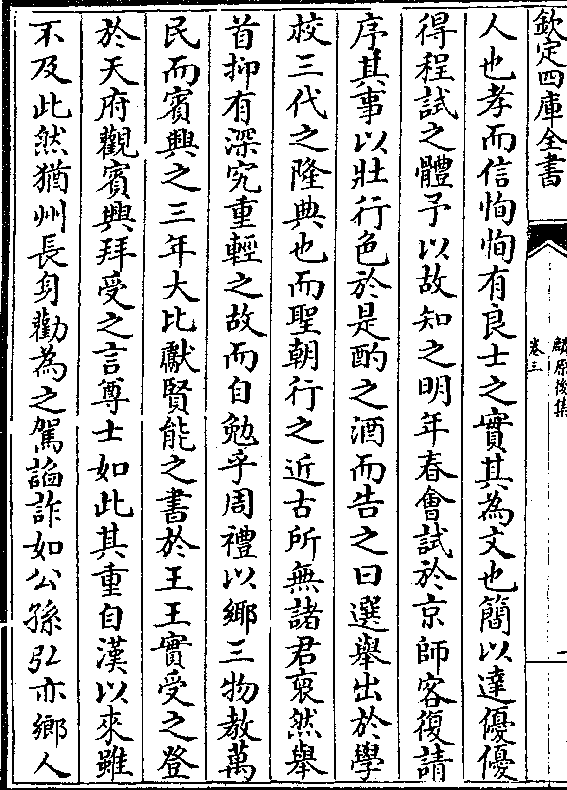 欽定四庫全書
麟原後集
卷三
人也孝而信恂恂有良士之實其為文也簡以達優優
得程試之體予以故知之明年春會試於京師客復請
序其事以壯行色於是酌之酒而告之曰選舉出於學
校三代之隆典也而聖朝行之近古所無諸君裒然舉
首抑有深究重輕之故而自勉乎周禮以鄉三物教萬
民而賓興之三年大比獻賢能之書於王王實受之登
於天府觀賓興拜受之言尊士如此其重自漢以來雖
不及此然猶州長身勸為之駕諂詐如公孫弘亦鄉人